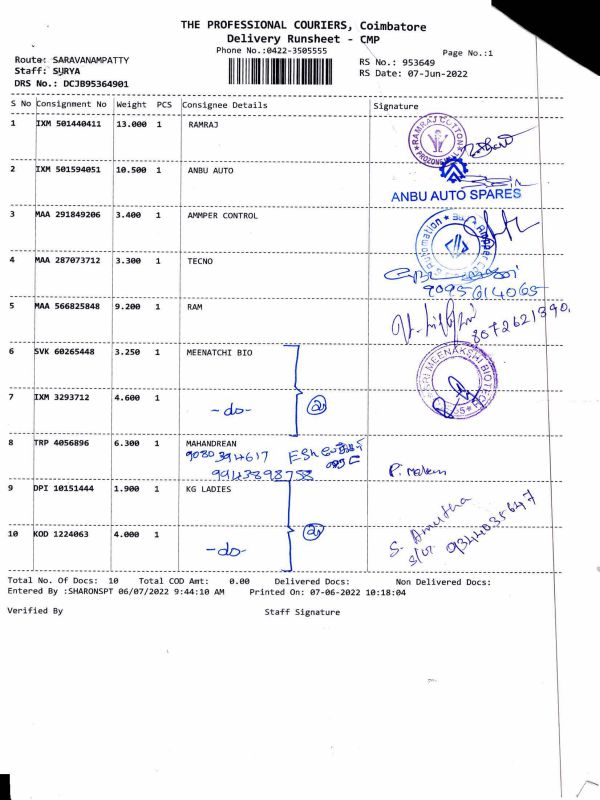 THE PROFESSIONAL COURIERS, Coimbatore
Delivery Runsheet - CMP
Phone No.:0422-3505555
Page No.:1
Route: SARAVANAMPATTY
RS No.: 953649
Staff: SURYA
RS Date: 07-Jun-2022
DRS No.: DCJB95364901
S No Consignment No Weight PCS Consignee Details Signature
1 IXM 501440411 13.000 1 RAMRAJ
RAMRAJ COTTON
2 IXM 501594051 10.500 1 ANBU AUTO
ANBU AUTO SPARES
3 MAA 291849206 3.400 1 AMMPER CONTROL
4 MAA 287073712 3.300 1 TECNO
9095614065
5 MAA 566825848 9.200 1 RAM
8072621390.
6 SVK 60265448 3.250 1 MEENATCHI BIO
SRI MEENAKSHI BIOTECH
7 IXM 3293712 4.600 1 -do- ②
8 TRP 4056896 6.300 1 MAHANDREAN
9080394617
9943898758
9 DPI 10151444 1.900 1 KG LADIES
S. Amutha
9344035647
10 KOD 1224063 4.000 1 -do- ②
Total No. Of Docs: 10 Total COD Amt: 0.00 Delivered Docs: Non Delivered Docs:
Entered By :SHARONSPT 06/07/2022 9:44:10 AM Printed On: 07-06-2022 10:18:04
Verified By Staff Signature